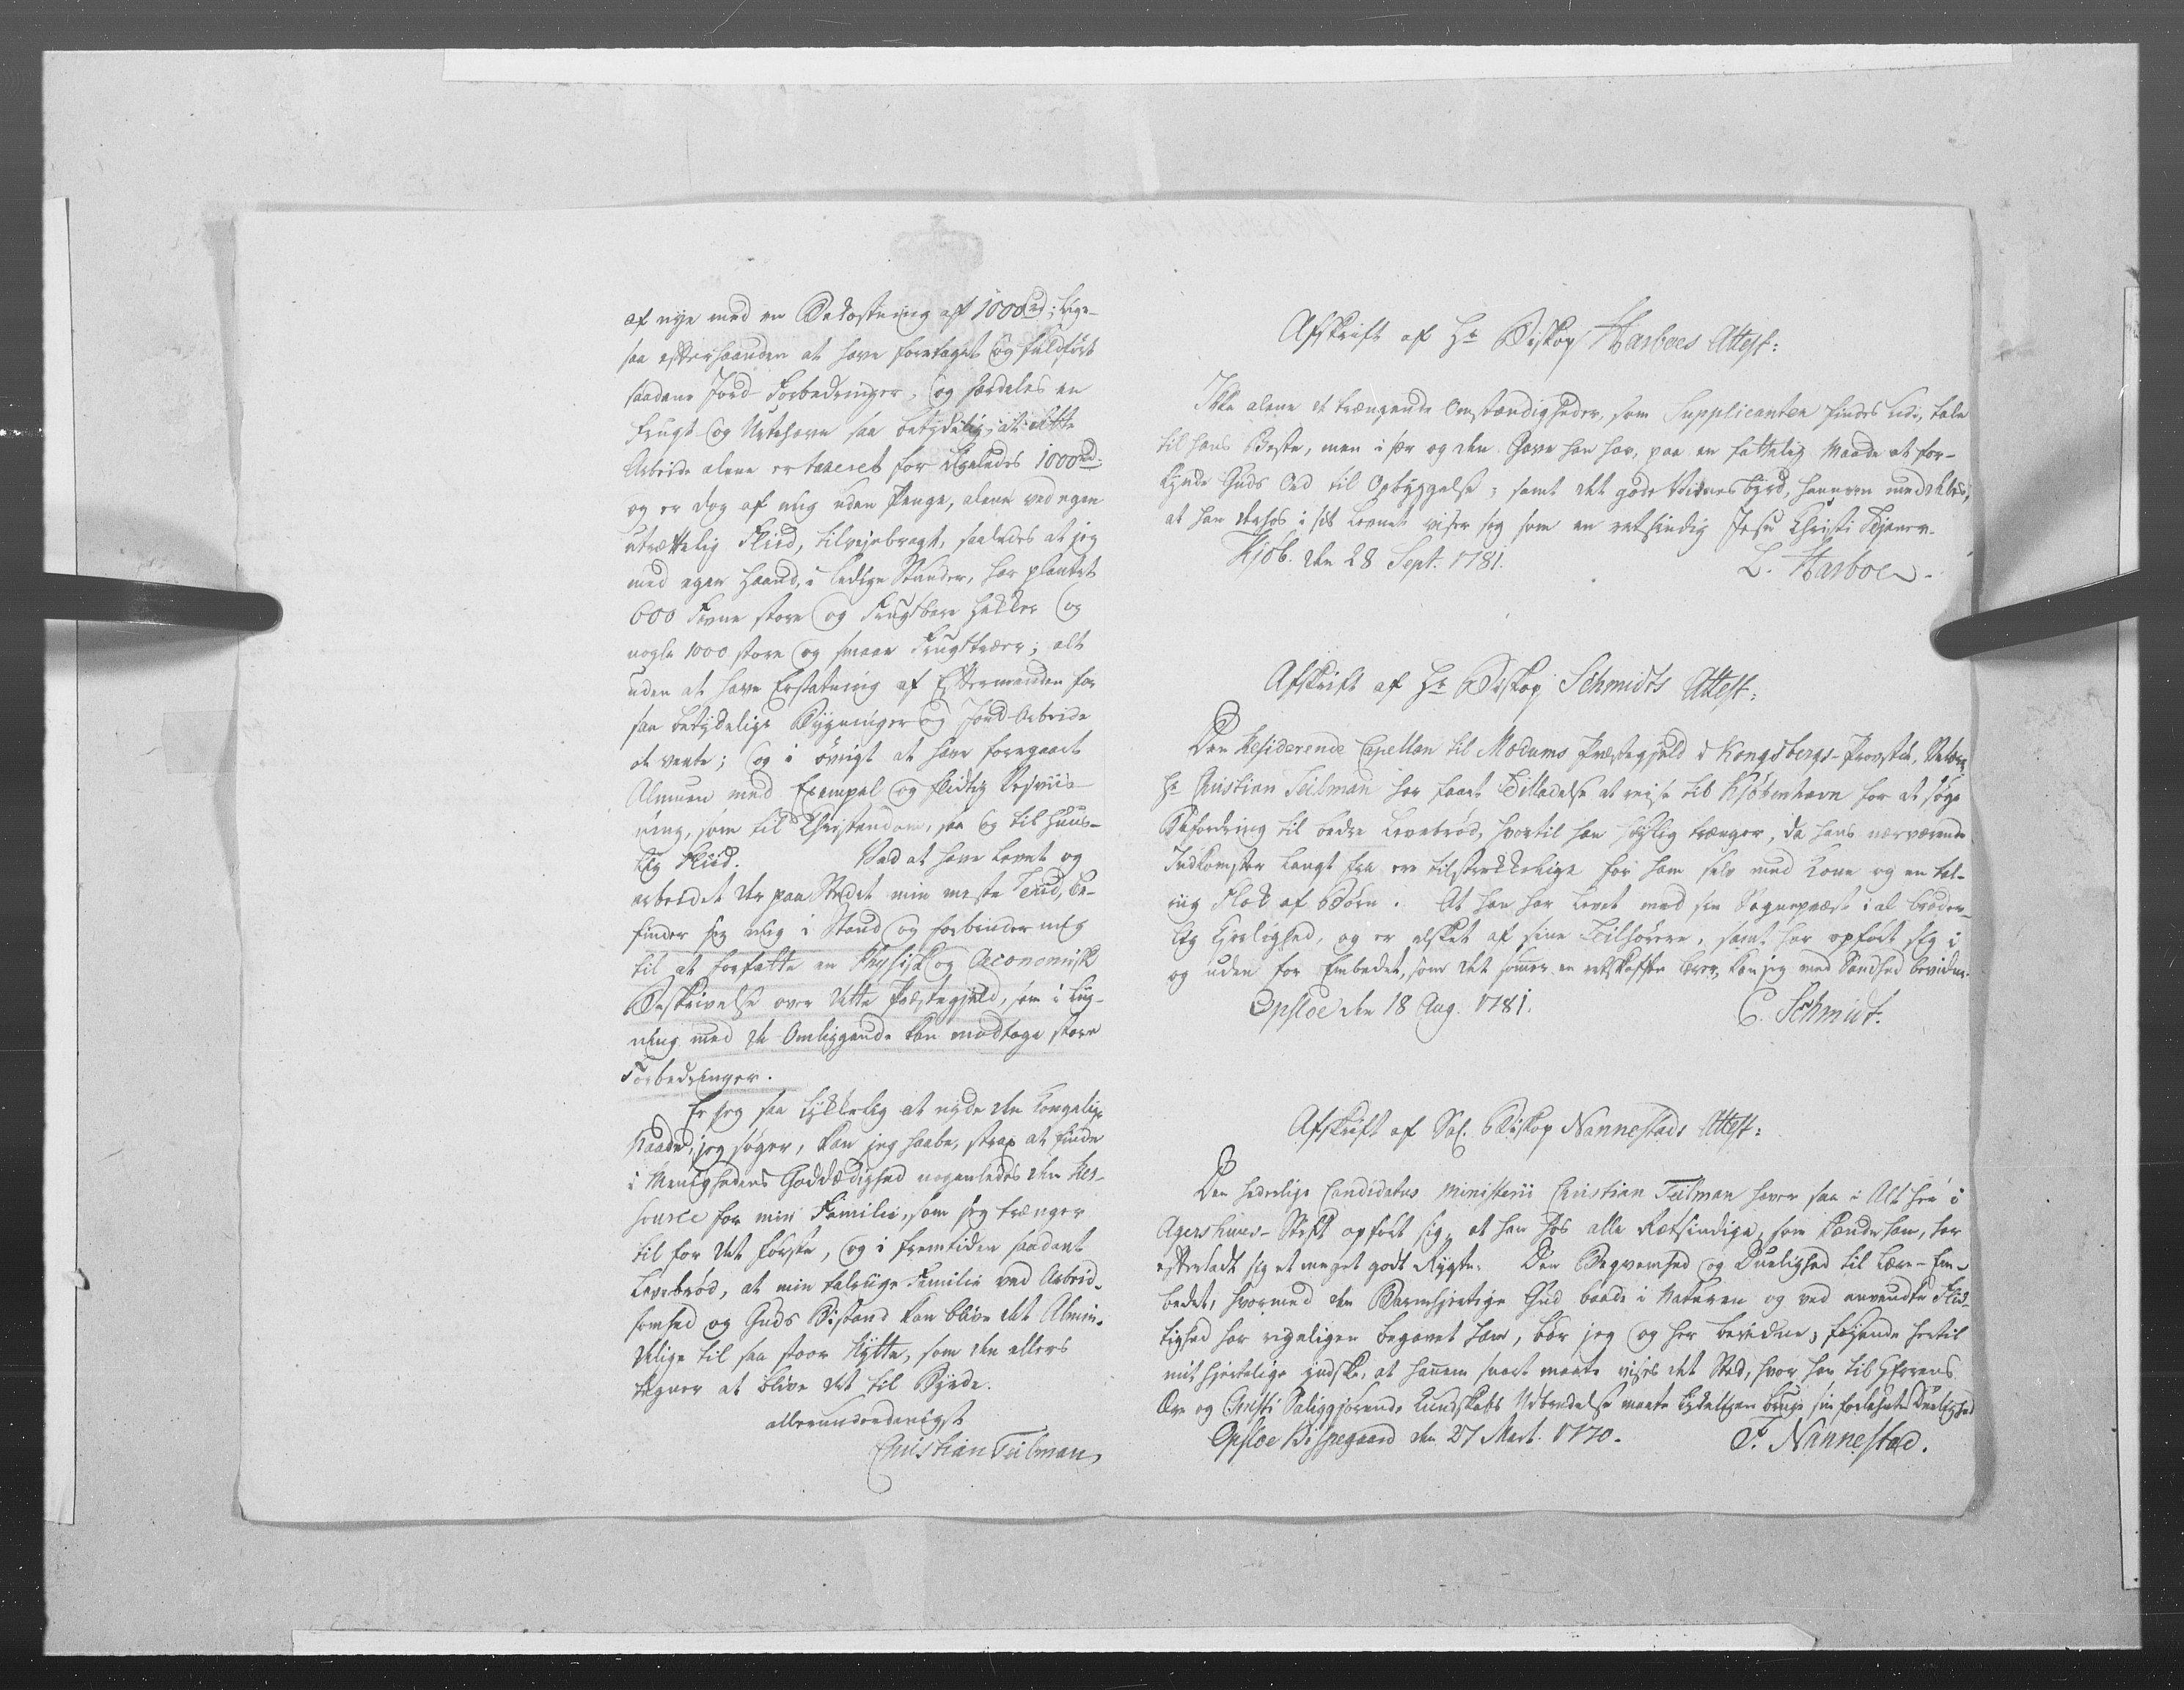 af nye med en Bekostning af 1000 rd; lige-
saa efterhaanden at have foretaget og fuldført
saadane Jord-Forbedringer, og særdeles en
Frugt- og Urtehave saa betydelig, at dette
Arbeide alene er taxeret for ligeledes 1000 rd:
og er dog af mig uden Penge, alene ved egen
utrættelig Fliid, tilvejebragt, saaledes at jeg
med egen Haand, i ledige Stunder, har plantet
600 Favne store og Frugtbare Hækker og
nogle 1000 store og smaae Frugttræer; alt
uden at have Erstatning af Eftermanden for
saa betydelige Bygninger og Jord-Arbeide
at vente; og i øvrigt at have foregaaet
Almuen med Exempel og flidtig Underviis-
ning, som til Christendom, saa og til huus-
lig Fliid. Ved at have levet og
arbeidet her paa Stedet min meste Tiid, be-
finder jeg mig i Stand og forbinder mig
til at forfatte en Physisk og Oeconomisk
Beskrivelse over dette Præstegjeld, som i Lig-
ning med de Omliggende kan modtage store
Forbedringer.
Er jeg saa lykkelig at nyde den Kongelige
Naade, jeg søger, kan jeg haabe, strax at finde
i Menighedens Goddædighed nogenledes den Res-
source for min Familie, som jeg trænger
til for det første, og i Fremtiden saadant
Levebrød, at min talrige Familie ved Arbeid-
somhed og Guds Bistand kan blive det Almin-
delige til saa stoor Nytte, som den ellers
tegner at blive det til Byrde.
allerunderdanigst
Christian Teilman
Afskrift af Hr Biskop Harboes Attest:
Ikke alene de trængende Omstændigheder, som Supplicanten findes udi, tale
til hans Beste, men i sær og den Gave han har, paa en fattelig Maade at for-
kynde Guds Ord til Opbyggelse; samt det gode Vidnesbyrd, hannem meddeles,
at han derhos i sit Levnet viser sig som en retsindig Jesu Christi Tjener.
Kjøb. den 28 Sept. 1781.
L. Harboe.
Afskrift af Hr Biskop Schmidts Attest:
Den Residerende Capellan til Modums Præstegjeld i Kongsbergs-Provstie,
Hr Christian Teilman har faaet Tilladelse at reise til Kjøbenhavn for at søge
Befordring til bedre Levebrød, hvortil han højlig trænger, da hans nærværende
Indkomster langt fra ere tilstrækkelige for ham selv med Kone og en tal-
riig Flok af Børn. At han har levet med sin Sognepræst i al broder-
lig Kjerlighed, og er elsket af sine Tilhørere, samt har opført sig i
og uden for Embedet, som det sømmer en retskaffen Lærer, kan jeg med Sandhed bevidne.
Opsloe den 18 Aug. 1781.
C. Schmidt.
Afskrift af Sal. Biskop Nannestads Attest:
Den hæderlige Candidatus Ministerii Christian Teilman haver saa i Alt her i
Agershuus-Stift opført sig, at han hos alle Retsindige, som kiende ham, har
efterladt sig et meget godt Rygte. Den Beqvemhed og Duelighed til Lære-Em-
bedet, hvormed den Barmhjertige Gud baade i Naturen og ved anvendte Flit-
tighed har rigeligen begavet ham, bør jeg og her bevidne; føyende hertil
mit hjertelige Ynske, at hannem snart maatte vises det Sted, hvor han til Herrens
Ære og Christi Saliggjørende Kundskabs Udbredelse maatte lykkeligen bruge sin forlehnte Duelighed
Opsloe Bispegaard den 27 Mart. 1770.
F. Nannestad.